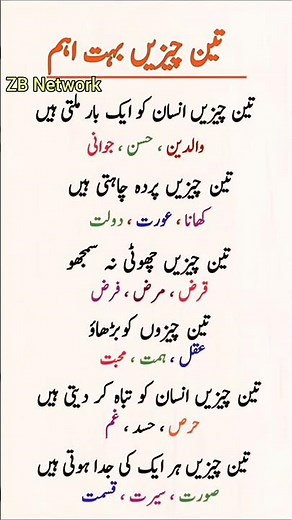 تین چیزیں بہت اہم
ZB Network
تین چیزیں انسان کو ایک بار ملتی ہیں
والدین ، حسن ، جوانی
تین چیزیں پردہ چاہتی ہیں
کھانا ، عورت ، دولت
تین چیزیں چھوٹی نہ سمجھو
قرض ، مرض ، فرض
تین چیزوں کو بڑھاؤ
عقل ، ہمت ، محبت
تین چیزیں انسان کو تباہ کر دیتی ہیں
حرص ، حسد ، غم
تین چیزیں ہر ایک کی جدا ہوتی ہیں
صورت ، سیرت ، قسمت